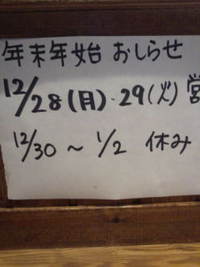 年末年始 おしらせ
12/28(月)・29(火) 営
12/30 ～ 1/2 休み